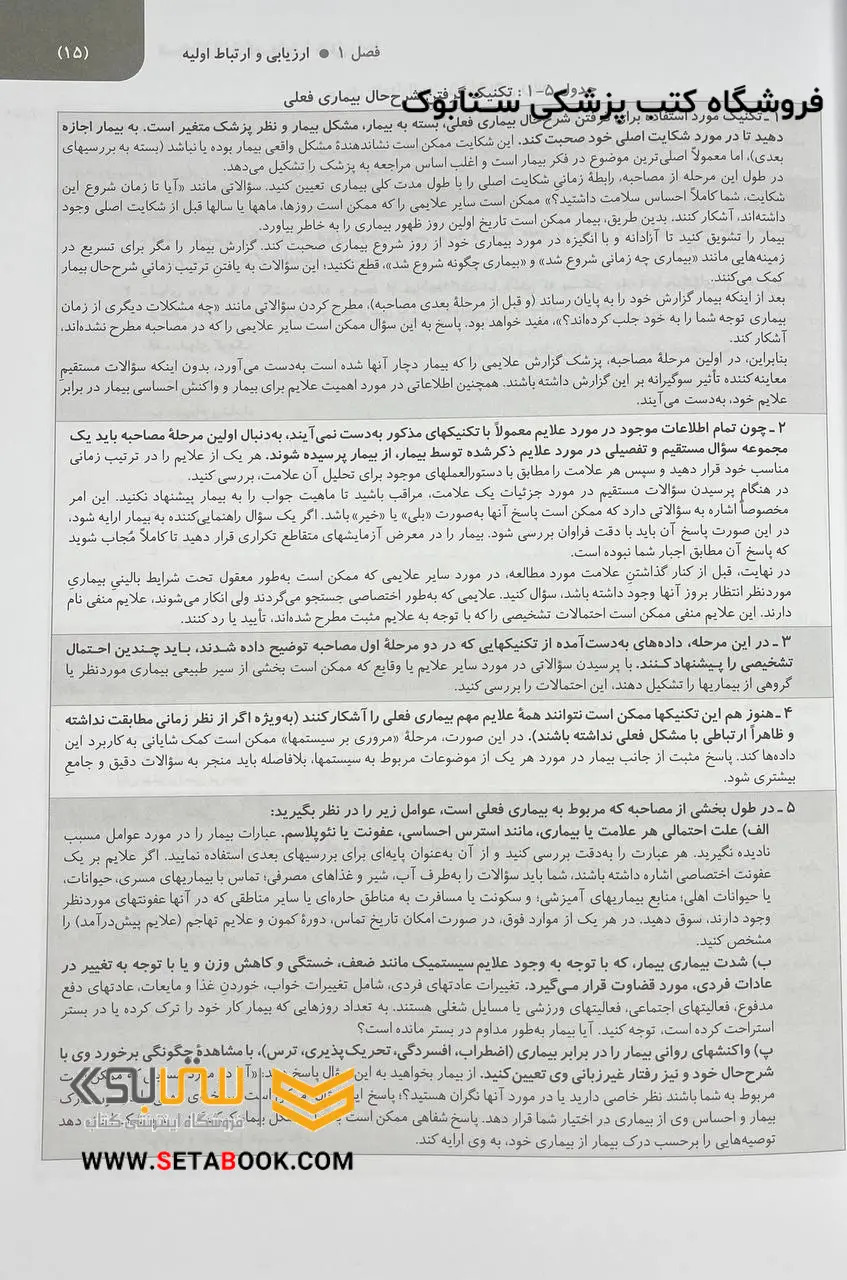 فصل ۱ ● ارزیابی و ارتباط اولیه
(۱۵)
فروشگاه کتب پزشکی ستابوک
جدول ۵-۱ : تکنیک گرفتن شرح‌حال بیماری فعلی
۱ ـ تکنیک مورد استفاده برای گرفتن شرح‌حال بیماری فعلی، بسته به بیمار، مشکل بیمار و نظر پزشک متغیر است. به بیمار اجازه
دهید تا در مورد شکایت اصلی خود صحبت کند. این شکایت ممکن است نشاندهندهٔ مشکل واقعی بیمار بوده یا نباشد (بسته به بررسیهای
بعدی)، اما معمولاً اصلی‌ترین موضوع در فکر بیمار است و اغلب اساس مراجعه به پزشک را تشکیل می‌دهد.
در طول این مرحله از مصاحبه، رابطهٔ زمانیِ شکایت اصلی را با طول مدت کلی بیماری تعیین کنید. سؤالاتی مانند «آیا تا زمان شروع این
شکایت، شما کاملاً احساس سلامت داشتید؟» ممکن است سایر علایمی را که ممکن است روزها، ماهها یا سالها قبل از شکایت اصلی وجود
داشته‌اند، آشکار کنند. بدین طریق، بیمار ممکن است تاریخ اولین روز ظهور بیماری را به خاطر بیاورد.
بیمار را تشویق کنید تا آزادانه و با انگیزه در مورد بیماری خود از روز شروع بیماری صحبت کند. گزارش بیمار را مگر برای تسریع در
زمینه‌هایی مانند «بیماری چه زمانی شروع شد» و «بیماری چگونه شروع شد»، قطع نکنید؛ این سؤالات به یافتن ترتیب زمانیِ شرح‌حال بیمار
کمک می‌کنند.
بعد از اینکه بیمار گزارش خود را به پایان رساند (و قبل از مرحلهٔ بعدی مصاحبه)، مطرح کردن سؤالاتی مانند «چه مشکلات دیگری از زمان
بیماری توجه شما را به خود جلب کرده‌اند؟»، مفید خواهد بود. پاسخ به این سؤال ممکن است سایر علایمی را که در مصاحبه مطرح نشده‌اند،
آشکار کند.
بنابراین، در اولین مرحلهٔ مصاحبه، پزشک گزارش علایمی را که بیمار دچار آنها شده است به‌دست می‌آورد، بدون اینکه سؤالات مستقیمِ
معاینه‌کننده تأثیر سوگیرانه بر این گزارش داشته باشند. همچنین اطلاعاتی در مورد اهمیت علایم برای بیمار و واکنش احساسی بیمار در برابر
علایم خود، به‌دست می‌آیند.
۲ ـ چون تمام اطلاعات موجود در مورد علایم معمولاً با تکنیکهای مذکور به‌دست نمی‌آیند، به‌دنبال اولین مرحلهٔ مصاحبه باید یک
مجموعه سؤال مستقیم و تفصیلی در مورد علایم ذکر شده توسط بیمار، از بیمار پرسیده شوند. هر یک از علایم را در ترتیب زمانی
مناسب خود قرار دهید و سپس هر علامت را مطابق با دستورالعملهای موجود برای تحلیل آن علامت، بررسی کنید.
در هنگام پرسیدن سؤالات مستقیم در مورد جزئیات یک علامت، مراقب باشید تا ماهیت جواب را به بیمار پیشنهاد نکنید. این امر
مخصوصاً اشاره به سؤالاتی دارد که ممکن است پاسخ آنها به‌صورت «بلی» یا «خیر» باشد. اگر یک سؤال راهنمایی‌کننده به بیمار ارایه شود،
در این صورت پاسخ آن باید با دقت فراوان بررسی شود. بیمار را در معرض آزمایشهای متقاطع تکراری قرار دهید تا کاملاً مُجاب شوید
که پاسخ آن مطابق اجبار شما نبوده است.
در نهایت، قبل از کنار گذاشتنِ علامت مورد مطالعه، در مورد سایر علایمی که ممکن است به‌طور معقول تحت شرایط بالینیِ بیماریِ
موردنظر انتظار بروز آنها وجود داشته باشد، سؤال کنید. علایمی که به‌طور اختصاصی جستجو می‌گردند ولی انکار می‌شوند، علایم منفی نام
دارند. این علایم منفی ممکن است احتمالات تشخیصی را که با توجه به علایم مثبت مطرح شده‌اند، تأیید یا رد کنند.
۳ ـ در این مرحله، داده‌های به‌دست‌آمده از تکنیکهایی که در دو مرحلهٔ اول مصاحبه توضیح داده شدند، باید چندین احتمال
تشخیصی را پیشنهاد کنند. با پرسیدن سؤالاتی در مورد سایر علایم یا وقایع که ممکن است بخشی از سیر طبیعی بیماری موردنظر یا
گروهی از بیماریها را تشکیل دهند، این احتمالات را بررسی کنید.
۴ ـ هنوز هم این تکنیکها ممکن است نتوانند همهٔ علایم مهم بیماری فعلی را آشکار کنند (به‌ویژه اگر از نظر زمانی مطابقت نداشته
و ظاهراً ارتباطی با مشکل فعلی نداشته باشند). در این صورت، مرحلهٔ «مروری بر سیستمها» ممکن است کمک شایانی به کاربرد این
داده‌ها کند. پاسخ مثبت از جانب بیمار در مورد هر یک از موضوعات مربوط به سیستمها، بلافاصله باید منجر به سؤالات دقیق و جامعِ
بیشتری شود.
۵ ـ در طول بخشی از مصاحبه که مربوط به بیماری فعلی است، عوامل زیر را در نظر بگیرید:
الف) علت احتمالی هر علامت یا بیماری، مانند استرس احساسی، عفونت یا نئوپلاسم. عبارات بیمار را در مورد عوامل مسبب
نادیده نگیرید. هر عبارت را به‌دقت بررسی کنید و از آن به‌عنوان پایه‌ای برای بررسیهای بعدی استفاده نمایید. اگر علایم بر یک
عفونت اختصاصی اشاره داشته باشند، شما باید سؤالات را به‌طرف آب، شیر و غذاهای مصرفی؛ تماس با بیماریهای مسری، حیوانات،
یا حیوانات اهلی؛ منابع بیماریهای آمیزشی؛ و سکونت یا مسافرت به مناطق حاره‌ای یا سایر مناطقی که در آنها عفونتهای موردنظر
وجود دارند، سوق دهید. در هر یک از موارد فوق، در صورت امکان تاریخ تماس، دورهٔ کمون و علایم تهاجم (علایم پیش‌درآمد) را
مشخص کنید.
ب) شدت بیماری بیمار، که با توجه به وجود علایم سیستمیک مانند ضعف، خستگی و کاهش وزن و یا با توجه به تغییر در
عادات فردی، مورد قضاوت قرار می‌گیرد. تغییرات عادتهای فردی، شامل تغییرات خواب، خوردنِ غذا و مایعات، عادتهای دفع
مدفوع، فعالیتهای اجتماعی، فعالیتهای ورزشی یا مسایل شغلی هستند. به تعداد روزهایی که بیمار کار خود را ترک کرده یا در بستر
استراحت کرده است، توجه کنید. آیا بیمار به‌طور مداوم در بستر مانده است؟
پ) واکنشهای روانی بیمار را در برابر بیماری (اضطراب، افسردگی، تحریک‌پذیری، ترس)، با مشاهدهٔ چگونگی برخورد وی با
شرح‌حال خود و نیز رفتار غیرزبانی وی تعیین کنید. از بیمار بخواهید به این سؤال پاسخ
مربوط به شما باشند نظر خاصی دارید یا در مورد آنها نگران هستید؟؛ پاسخ این
بیمار و احساس وی از بیماری در اختیار شما قرار دهد. پاسخ شفاهی ممکن است
توصیه‌هایی را برحسب درک بیمار از بیماری خود، به وی ارایه کند.
ستابوک
فروشگاه اینترنتی کتاب
WWW.SETABOOK.COM